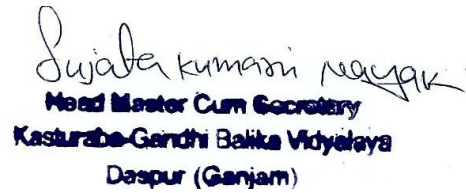 Sujata kumari Nayak
Head Master Cum Secretary
Kasturaba-Gandhi Balika Vidyalaya
Daspur (Ganjam)